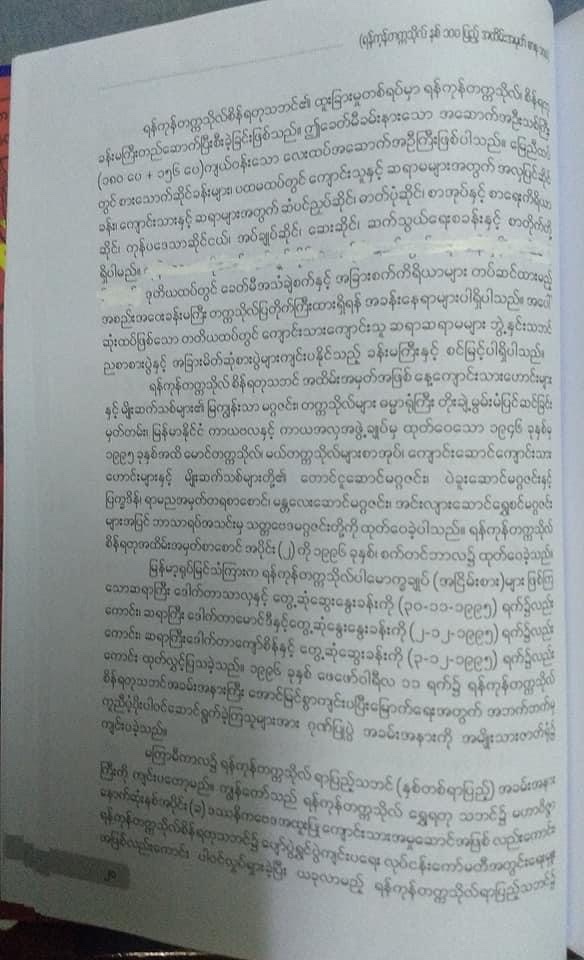 (ရန်ကုန်တက္ကသိုလ် နှစ် ၁၀၀ ပြည့် အထိမ်းအမှတ်
ရန်ကုန်တက္ကသိုလ်စိန်ရတုသဘင်၏ ထူးခြားမှုတစ်ရပ်မှာ ရန်ကုန်တက္ကသိုလ် စိန်ရတု
ခန်းမကြီးတည်ဆောက်ပြီးစီးခဲ့ခြင်းဖြစ်သည်။ ဤခေတ်မီခမ်းနားသော အဆောက်အဦးသစ်ကြီး
(၁၈၀ ပေ + ၁၅၆ ပေ)ကျယ်ဝန်းသော လေးထပ်အဆောက်အဦကြီးဖြစ်ပါသည်။ မြေညီထပ်
တွင် စားသောက်ဆိုင်ခန်းများ၊ ပထမထပ်တွင် ကျောင်းသူနှင့် ဆရာမများအတွက် အလှပြင်ဆိုင်
ခန်း၊ ကျောင်းသားနှင့် ဆရာများအတွက် ဆံပင်ညှပ်ဆိုင်၊ ဓာတ်ပုံဆိုင်၊ စာအုပ်နှင့် စာရေးကိရိယာ
ဆိုင်၊ ကုန်ပဒေသာဆိုင်ငယ်၊ အပ်ချုပ်ဆိုင်၊ ဆေးဆိုင်၊ ဆက်သွယ်ရေးစခန်းနှင့် စာတိုက်တို့
ရှိပါမည်။
ဒုတိယထပ်တွင် ခေတ်မီအသံချဲ့စက်နှင့် အခြားစက်ကိရိယာများ တပ်ဆင်ထားမည့်
အစည်းအဝေးခန်းမကြီး တက္ကသိုလ်ပြတိုက်ကြီးထားရှိရန် အခန်းနေရာများပါရှိပါသည်။ အပေါ်
ဆုံးထပ်ဖြစ်သော တတိယထပ်တွင် ကျောင်းသားကျောင်းသူ ဆရာဆရာမများ ဘွဲ့နှင်းသဘင်
ညစာစားပွဲနှင့် အခြားမိတ်ဆုံစားပွဲများကျင်းပနိုင်သည့် ခန်းမကြီးနှင့် စင်မြင့်ပါရှိပါသည်။
ရန်ကုန်တက္ကသိုလ် စိန်ရတုသဘင် အထိမ်းအမှတ်အဖြစ် နေ့ကျောင်းသားဟောင်းများ
နှင့် မျိုးဆက်သစ်များ၏ မြကျွန်းသာ မဂ္ဂဇင်း၊ တက္ကသိုလ်များ ဓမ္မာရုံကြီး တိုးချဲ့မွမ်းမံပြင်ဆင်ခြင်း
မှတ်တမ်း၊ မြန်မာနိုင်ငံ ကာယဗလနှင့် ကာယအလှအဖွဲ့ချုပ်မှ ထုတ်ဝေသော ၁၉၄၆ ခုနှစ်မှ
၁၉၉၅ ခုနှစ်အထိ မောင်တက္ကသိုလ်၊ မယ်တက္ကသိုလ်များစာအုပ်၊ ကျောင်းဆောင်ကျောင်းသား
ဟောင်းများနှင့် မျိုးဆက်သစ်များတို့၏ တောင်ငူဆောင်မဂ္ဂဇင်း၊ ပဲခူးဆောင်မဂ္ဂဇင်းနှင့်
ပြက္ခဒိန်၊ ရာမညအမှတ်တရစာစောင်၊ မန္တလေးဆောင်မဂ္ဂဇင်း၊ အင်းလျားဆောင်ရွှေစင်မဂ္ဂဇင်း
များအပြင် ဘာသာရပ်အသင်းမှ သတ္တဗေဒမဂ္ဂဇင်းတို့ကို ထုတ်ဝေခဲ့ပါသည်။ ရန်ကုန်တက္ကသိုလ်
စိန်ရတုအထိမ်းအမှတ်စာစောင် အပိုင်း (၂) ကို ၁၉၉၆ ခုနှစ်၊ စက်တင်ဘာလ၌ ထုတ်ဝေခဲ့သည်။
မြန်မာ့ရုပ်မြင်သံကြားက ရန်ကုန်တက္ကသိုလ်ပါမောက္ခချုပ် (အငြိမ်းစား)များ ဖြစ်ကြ
သောဆရာကြီး ဒေါက်တာသာလှနှင့် တွေ့ဆုံဆွေးနွေးခန်းကို (၃၀-၁၁-၁၉၉၅) ရက်၌လည်း
ကောင်း၊ ဆရာကြီး ဒေါက်တာမောင်ဒီနှင့်တွေ့ဆုံနွေးနွေးခန်းကို (၂-၁၂-၁၉၉၅) ရက်၌လည်း
ကောင်း၊ ဆရာကြီးဒေါက်တာကျော်စိန်နှင့် တွေ့ဆုံဆွေးခန်းကို (၃-၁၂-၁၉၉၅) ရက်၌လည်း
ကောင်း ထုတ်လွှင့်ပြသခဲ့သည်။ ၁၉၉၆ ခုနှစ် ဖေဖော်ဝါရီလ ၁၁ ရက်၌ ရန်ကုန်တက္ကသိုလ်
စိန်ရတုသဘင်အခမ်းအနားကြီး အောင်မြင်စွာကျင်းပပြီးမြောက်ရေးအတွက် အဘက်ဘက်မှ
ကူညီပံ့ပိုးပါဝင်ဆောင်ရွက်ခဲ့ကြသူများအား ဂုဏ်ပြုပွဲ အခမ်းအနားကို အမျိုးသားဇာတ်ရုံ၌
ကျင်းပခဲ့သည်။
မကြာမီကာလ၌ ရန်ကုန်တက္ကသိုလ် ရာပြည့်သဘင် (နှစ်တစ်ရာပြည့်) အခမ်းအနား
ကြီးကို ကျင်းပတော့မည်။ ကျွန်တော်သည် ရန်ကုန်တက္ကသိုလ် ရွှေရတု သဘင်၌ မဟာဝိဇ္ဇာ
နောက်ဆုံးနှစ်အပိုင်း (ခ) ဒဿနိကဗေဒအထူးပြု ကျောင်းသားအမှုဆောင်အဖြစ် လည်းကောင်း
ရန်ကုန်တက္ကသိုလ်စိန်ရတုသဘင်၌ ပျော်ပွဲရွှင်ပွဲကျင်းပရေး လုပ်ငန်းကော်မတီအတွင်းရေးမှူး
အဖြစ်လည်းကောင်း ပါဝင်လှုပ်ရှားခဲ့ပြီး ယခုလာမည့် ရန်ကုန်တက္ကသိုလ်ရာပြည့်သဘင်၌
၂၀